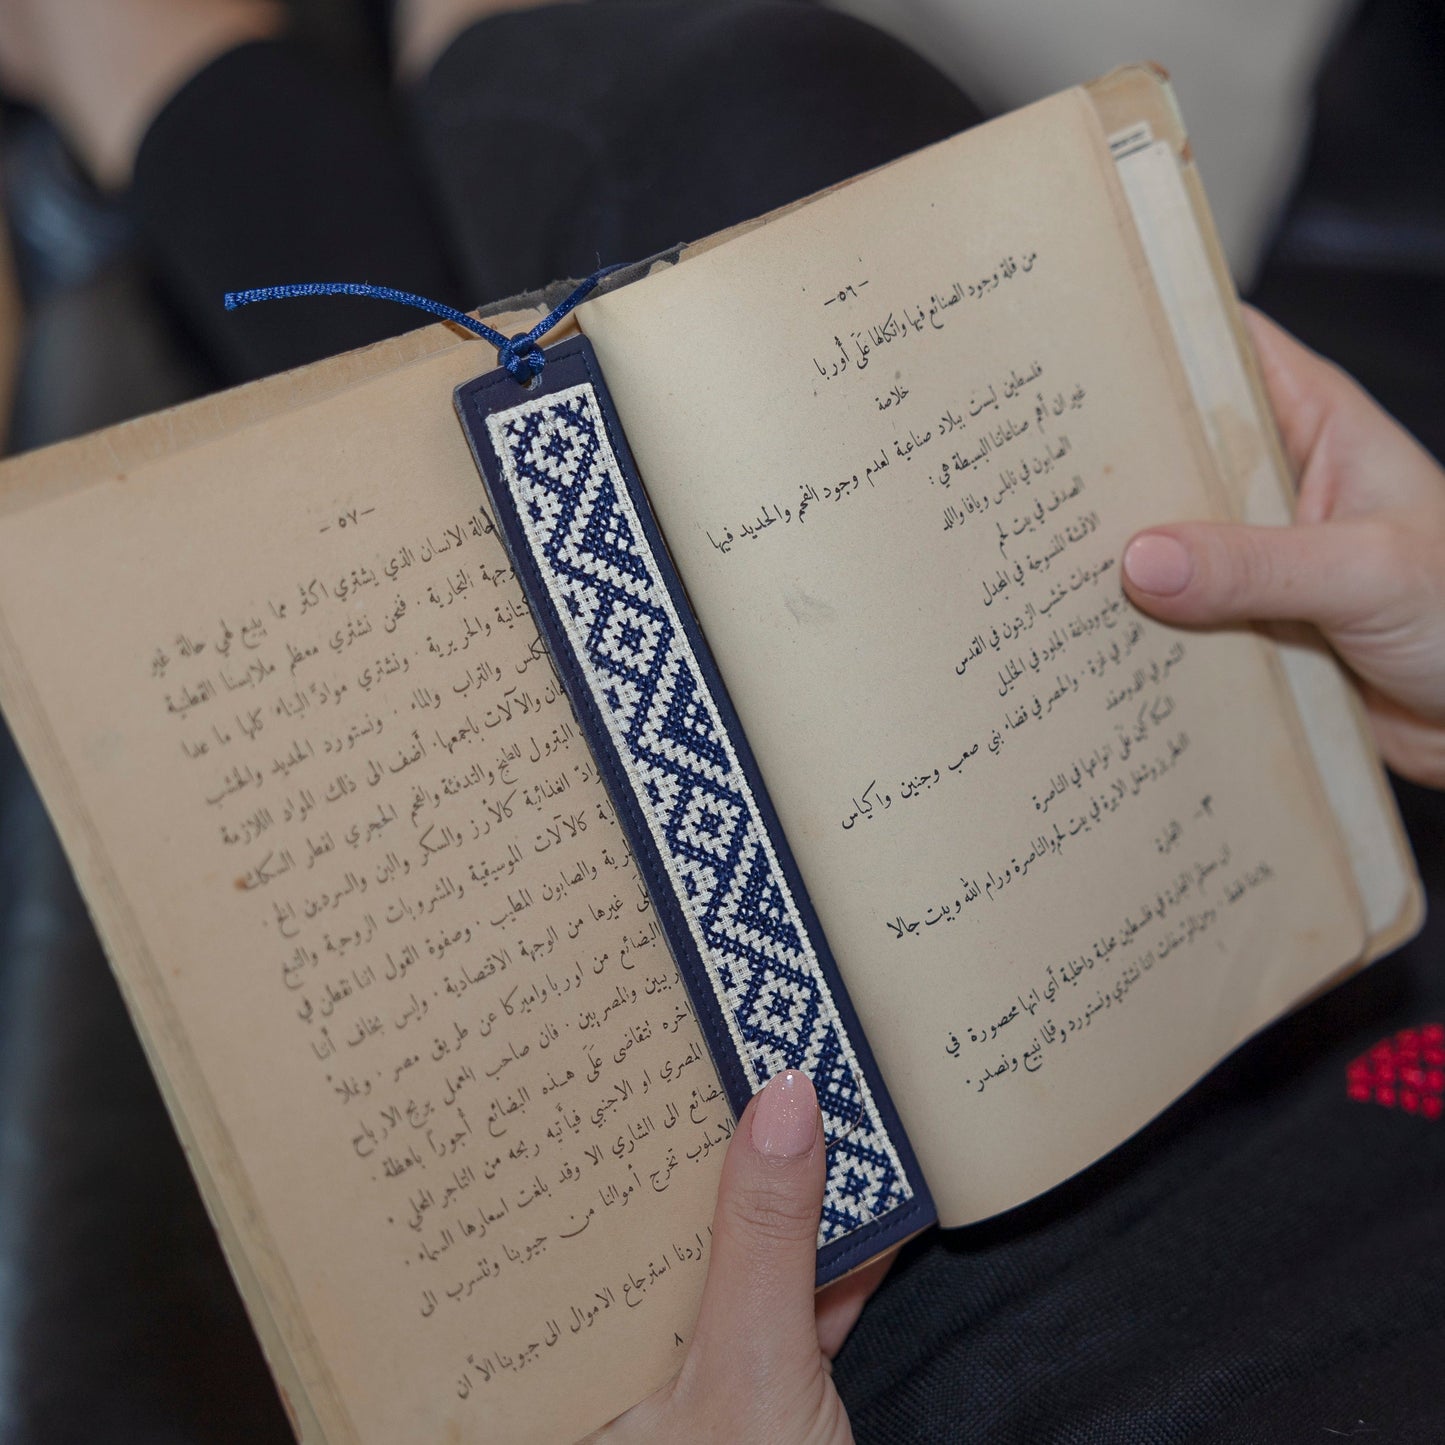 -٥٦-
من قلة وجود الصنائع فيها واتكالها عَلَى أوربا
خلاصة
فلسطين ليست ببلاد صناعية لعدم وجود الفحم والحديد فيها
غير ان أهم صناعاتنا البسيطة هي:
الصابون في نابلس ويافا واللد
الصدف في بيت لحم
الاقمشة المنسوجة في المجدل
مصنوعات خشب الزيتون في القدس
الزجاج ودباغة الجلود في الخليل
الفخار في غزة. والحصر في قضاء بني صعب وجنين واكياس
الشعر في اللد وصفد
السكاكين عَلَى انواعها في الناصرة
التطريز وشغل الابرة في بيت لحم والناصرة ورام الله وبيت جالا
٣- التجارة
ان معظم التجارة في فلسطين محلية داخلية أي انها محصورة في
بلادنا فقط. ومن المؤسفات اننا نشتري ونستورد وقلما نبيع ونصدر.
-٥٧-
حالة الانسان الذي يشتري اكثر مما يبيع لهي حالة غير
التجارية. فنحن نشتري معظم ملابسنا القطنية
والحريرية. ونشتري موادّ البناء كلها ما عدا
والتراب والماء. ونستورد الحديد والخشب
والآلات باجمعها. أضف الى ذلك المواد اللازمة
البترول للطبخ والتدفئة والفحم الحجري لقطر السكك
الغذائية كالأرز والسكر والبن والسردين الخ.
كالآلات الموسيقية والمشروبات الروحية والتبغ
والصابون المطيب. وصفوة القول اننا نقطن في
غيرها من الوجهة الاقتصادية. وليس بخاف أننا
البضائع من اوربا واميركا عن طريق مصر. وعملاً
والمصريين. فان صاحب المعمل يربح الارباح
تتقاضى عَلَى هذه البضائع أجوراً باهظة.
المصري او الاجنبي فيأتيه ربحه من التاجر المحلي.
الى الشاري الا وقد بلغت اسعارها السماء.
الاسلوب تخرج أموالنا من جيوبنا وتتسرب الى
اردنا استرجاع الاموال الى جيوبنا الاّ ان
٨